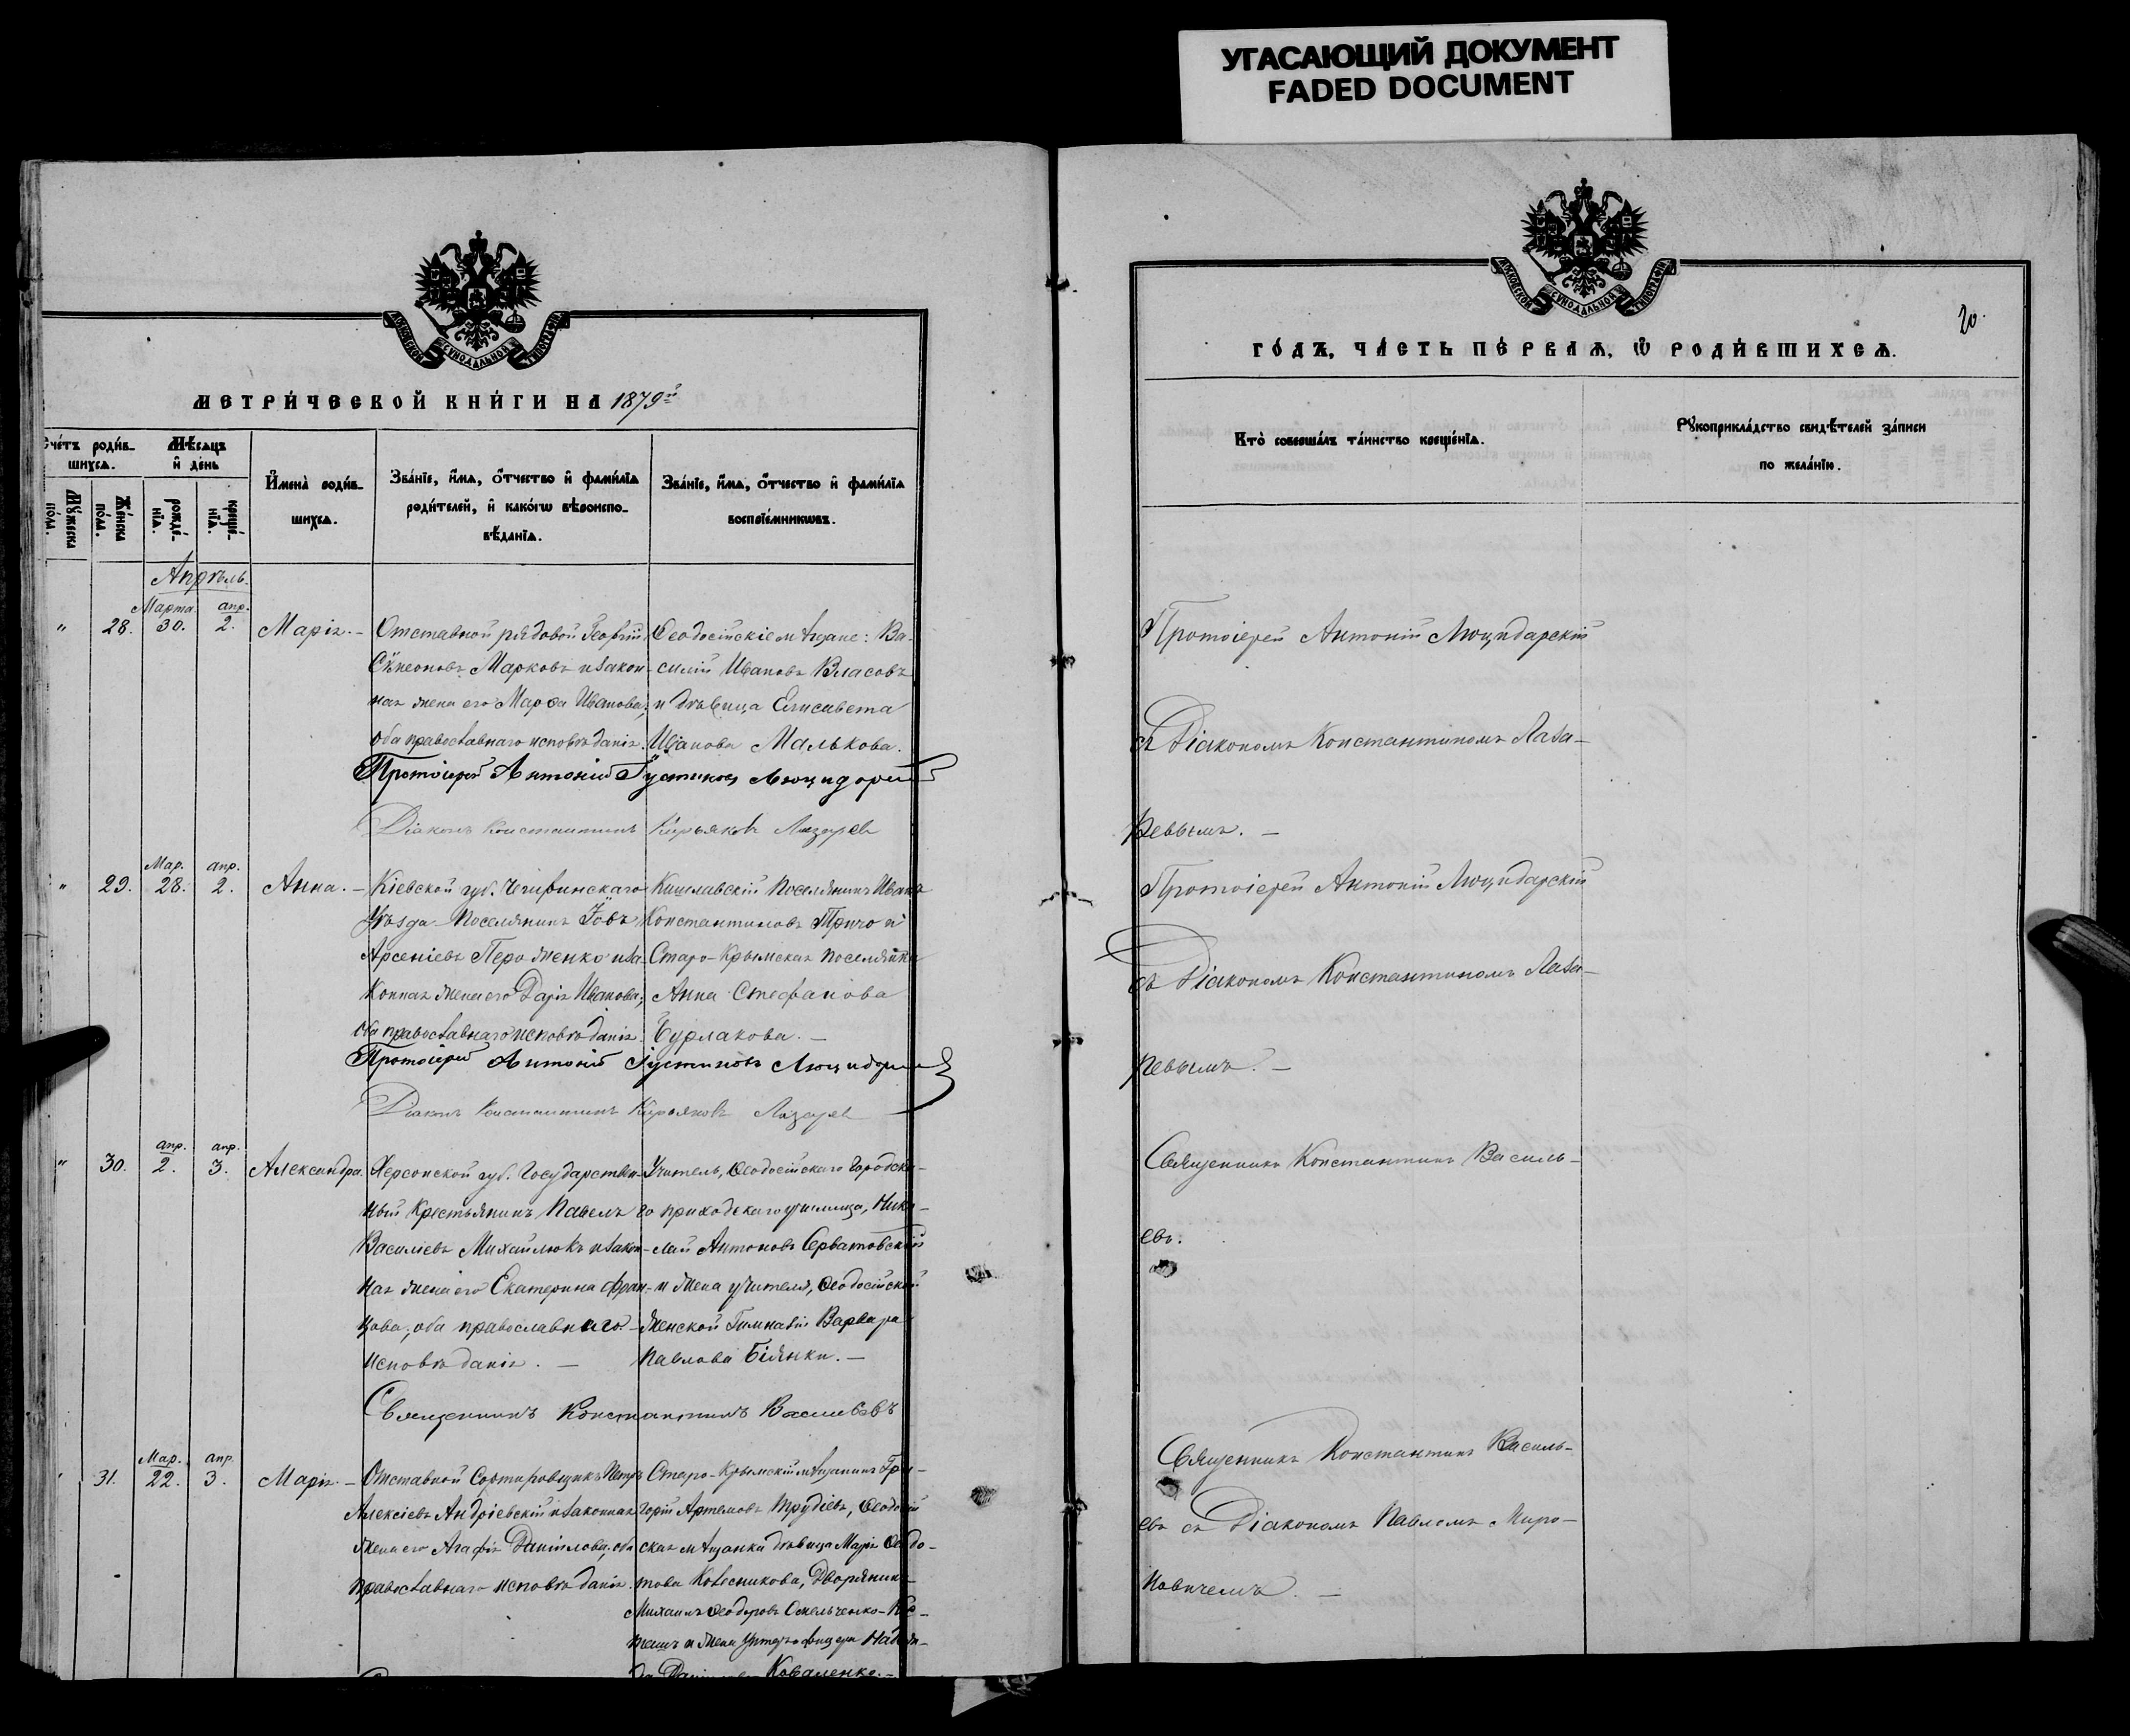 УГАСАЮЩИЙ ДОКУМЕНТ
FADED DOCUMENT
МОСКОВСКОЙ СѴНОДАЛЬНОЙ ТИПОГРАФІИ
МЕТРИ́ЧЕСКОЙ КНИ́ГИ НА 1879й
Сче́тъ роди́в-
шихсѧ.
Мꙋ́жеска по́ла.
Же́нска по́ла.
Мѣ́сѧцъ и҆ де́нь
рожде́-нїѧ.
креще́-нїѧ.
И҆мена̀ роди́в-
шихсѧ.
Зва́нїе, и҆́мѧ, о҆́тчество и҆ фами́лїѧ
роди́телей, и҆ како́гѡ вѣроиспо-
вѣ́данїѧ.
Зва́нїе, и҆́мѧ, о҆́тчество и҆ фами́лїѧ
воспрїе́мникѡвъ.
Апрѣль.
Марта апр.
" 28. 30. 2. Марія. –
Отставной рядовой Георгій
Сѵмеоновъ Марковъ и закон-
ная жена его Марѳа Иванова;
оба православнаго исповѣданія.
Ѳеодосійскіе мѣщане: Ва-
силій Ивановъ Власовъ
и дѣвица Елисавета
Иванова Малькова.
Протоіерей Антоній Іустиновъ
Діаконъ Константинъ Кирьяковъ Лазарев
Мар. апр.
" 29. 28. 2. Анна. –
Кіевской губ. Чигиринскаго
Уѣзда Поселянинъ Іовъ
Арсеніевъ и за-
конная жена его Дарія Иванова;
оба православнаго исповѣданія.
Поселянинъ Иванъ
Константиновъ и
Старо-Крымская поселянка
Анна Стефанова
Бурлакова. –
Протоіерей Антоній Іустиновъ
Діаконъ Константинъ Кирьяковъ Лазарев
апр. апр.
" 30. 2. 3. Александра.
Херсонской губ. Государствен-
ный Крестьянинъ Павелъ
Василіевъ Михайлюкъ и закон-
ная жена его Екатерина Фран-
цова; оба православнаго –
исповѣданія. –
Учитель, Ѳеодосійскаго Городска-
го приходскаго училища, Нико-
лай Антоновъ Серватовскій
и жена учителя, Ѳеодосійской
Женской Гимназіи Варвара
Павлова –
Священникъ Константинъ Васильевъ
Мар. апр.
31. 22. 3. Марія. –
Отставной Сортировщикъ Петръ
Алексіевъ Андріевскій и законная
жена его Агафія Даніилова; оба
православнаго исповѣданія.
Старо-Крымскій мѣщанинъ Гри-
горій Артемовъ Трудіевъ, Ѳеодосій
ская мѣщанка дѣвица Марія Ѳедо-
това Колесникова, Дворянинъ
Михаилъ Ѳеодоровъ Омельченко-
и жена Унтеръ офицера Надеж-
да Коваленко. –
МОСКОВСКОЙ СѴНОДАЛЬНОЙ ТИПОГРАФІИ
20.
ГО́ДЪ, ЧА́СТЬ ПЕ́РВАѦ, Ѡ҆ РОДИ́ВШИХСѦ.
Кто̀ соверша́лъ та́инство креще́нїѧ.
Рꙋкоприкла́дство свидѣ́телей за́писи
по жела́нїю.
Протоіерей Антоній Люцидарскій
съ Діакономъ Константиномъ Лаза-
ревымъ. –
Протоіерей Антоній Люцидарскій
съ Діакономъ Константиномъ Лаза-
ревымъ. –
Священникъ Константинъ Василь-
евъ.
Священникъ Константинъ Василь-
евъ съ Діакономъ Павломъ Миро-
новичемъ. –